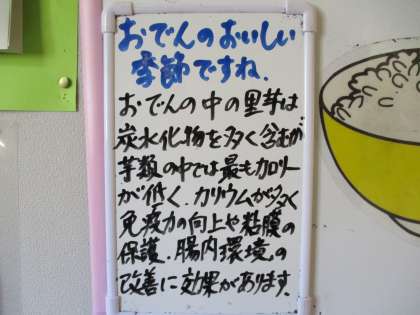 おでんのおいしい
季節ですね.
おでんの中の里芋は
炭水化物を多く含むが
芋類の中では最もカロリー
が低く、カリウムが多く
免疫力の向上や粘膜の
保護、腸内環境の
改善に効果があります.